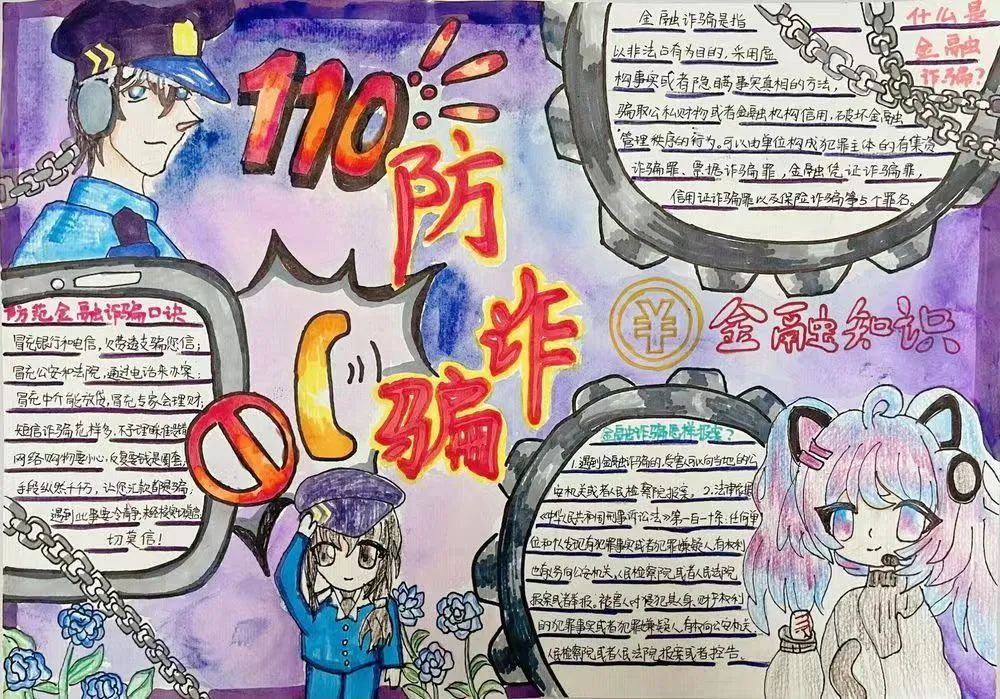 110
防
诈
骗
什么是
金融
诈骗?
金融诈骗是指
以非法占有为目的,采用虚
构事实或者隐瞒事实真相的方法,
骗取公私财物或者金融机构信用,破坏金融
管理秩序的行为,可以由单位构成犯罪主体的有集资
诈骗罪、票据诈骗罪,金融凭证诈骗罪,
信用证诈骗罪以及保险诈骗等5个罪名。
¥
金融知识
防范金融诈骗口诀
冒充银行和电信,欠费透支骗您信;
冒充公安和法院,通过电话来办案;
冒充中介能放贷,冒充专家会理财,
短信诈骗花样多,不予理睬准
网络购物要小心,反复要钱是圈套;
手段纵然千千万,让您汇款都是骗;
遇到此事要冷静,未经核实
切莫信!
金融诈骗怎样报案?
1.遇到金融诈骗的,受害可以向当地的公
安机关或者人民检察院报案, 2.法律依据
《中华人民共和国刑事诉讼法》第一百一十条,任何单
位和个人发现有犯罪事实或者犯罪嫌疑人,有权利
也有义务向公安机关,人民检察院或者人民法院
报案或者举报。被害人对侵犯其人身、财产权利
的犯罪事实或者犯罪嫌疑人,有权向公安机关
人民检察院或者人民法院报案或者控告。